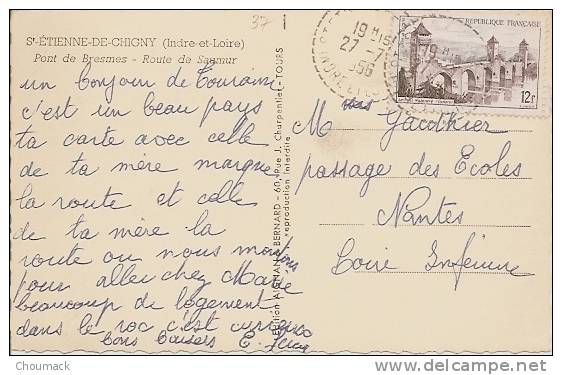 37
ST-ÉTIENNE-DE-CHIGNY (Indre-et-Loire)
Pont de Bresmes - Route de Saumur
un bonjour de Touraine
c'est un beau pays
ta carte avec celle
de ta mère marque
la route et celle
de ta mère la
route ou nous montons
pour aller chez Marie
beaucoup de logement
dans le roc c'est curieux
bons baisers E.
Edition ARNAND BERNARD - 60, Rue J. Charpentier - TOURS
reproduction interdite
19 H 15
27 - 7
1956
REPUBLIQUE FRANÇAISE
12f
M Gauthier
passage des Ecoles
Nantes
Loire Inférieure
© Choumack
delcampe.net